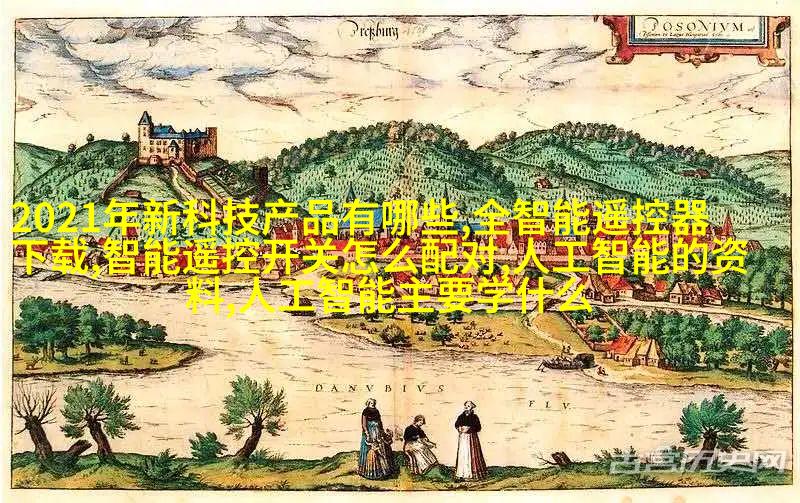 Preßburg
POSONIVM
2021年新科技产品有哪些,全智能遥控器
下载,智能遥控开关怎么配对,人工智能的资
料,人工智能主要学什么
DANVBIVS
FLV.
古宫历史网